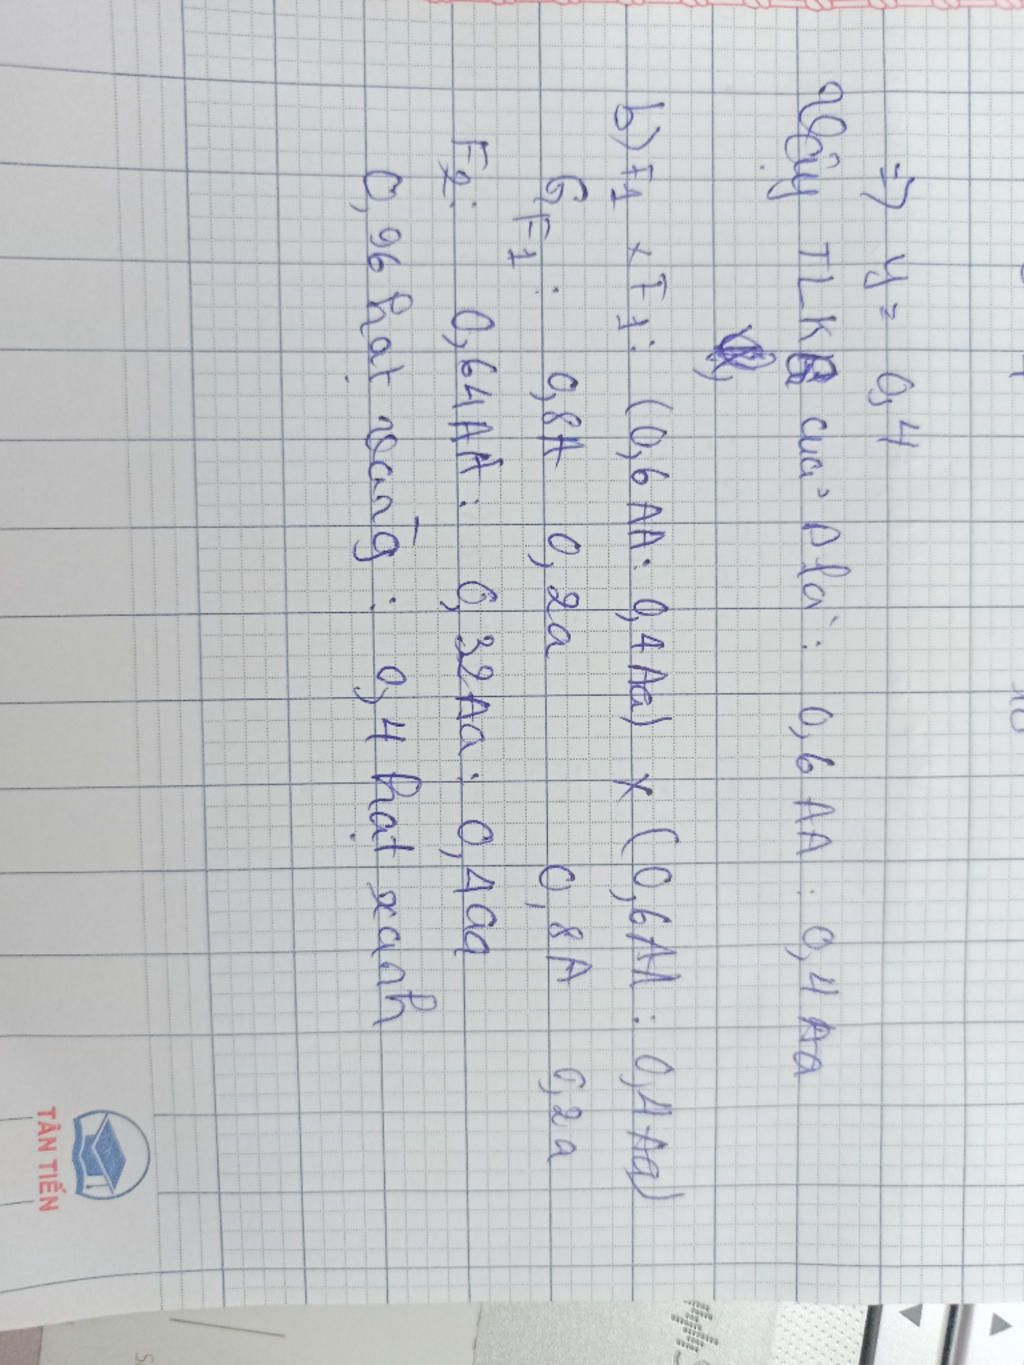 => y = 0,4
Vậy TLKG của P là: 0,6 AA : 0,4 Aa
b) F1 x F1: (0,6 AA: 0,4 Aa) x (0,6 AA : 0,4 Aa)
GF1: 0,8A 0,2a 0,8A 0,2a
F2: 0,64AA: 0,32Aa: 0,4aa
0,96 hạt vàng : 0,4 hạt xanh
TÂN TIẾN